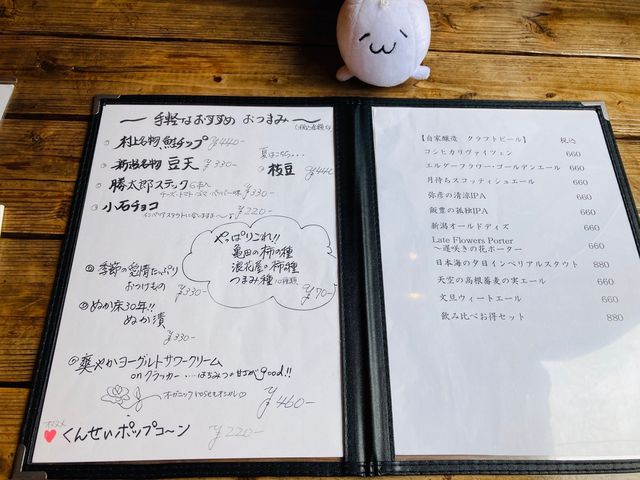 〜 手軽なおすすめ おつまみ 〜
村上名物 鮭チップ ¥440-
新潟名物 豆天 ¥330-
夏はこちら…
枝豆 ¥440
勝太郎スティック 6本入
チーズ・トマト・ゴマ・ペッパー味 ¥330-
小石チョコ
¥220-
やっぱりこれ!!
亀田の柿の種
浪花屋の柿の種
つまみ種 10種類
¥70-
季節の愛情たっぷり
おつけもの
¥330-
ぬか床30年!!
ぬか漬
¥330-
爽やかヨーグルトサワークリーム
onクラッカー …‥はちみつの甘さがgood!!
オーガニックroseもオシャレ♡
¥460-
オススメ
♥くんせいポップコ〜ン ¥220-
【自家醸造 クラフトビール】 税込
コシヒカリヴァイツェン 660
エルダーフラワー・ゴールデンエール 660
月待ちスコッティシュエール 660
弥彦の清涼IPA 660
飯豊の孤独IPA 660
新潟オールドデイズ 660
Late Flowers Porter
〜遅咲きの花ポーター 660
日本海の夕日インペリアルスタウト 880
天空の高根蕎麦の実エール 660
文旦ウィートエール 660
飲み比べお得セット 880